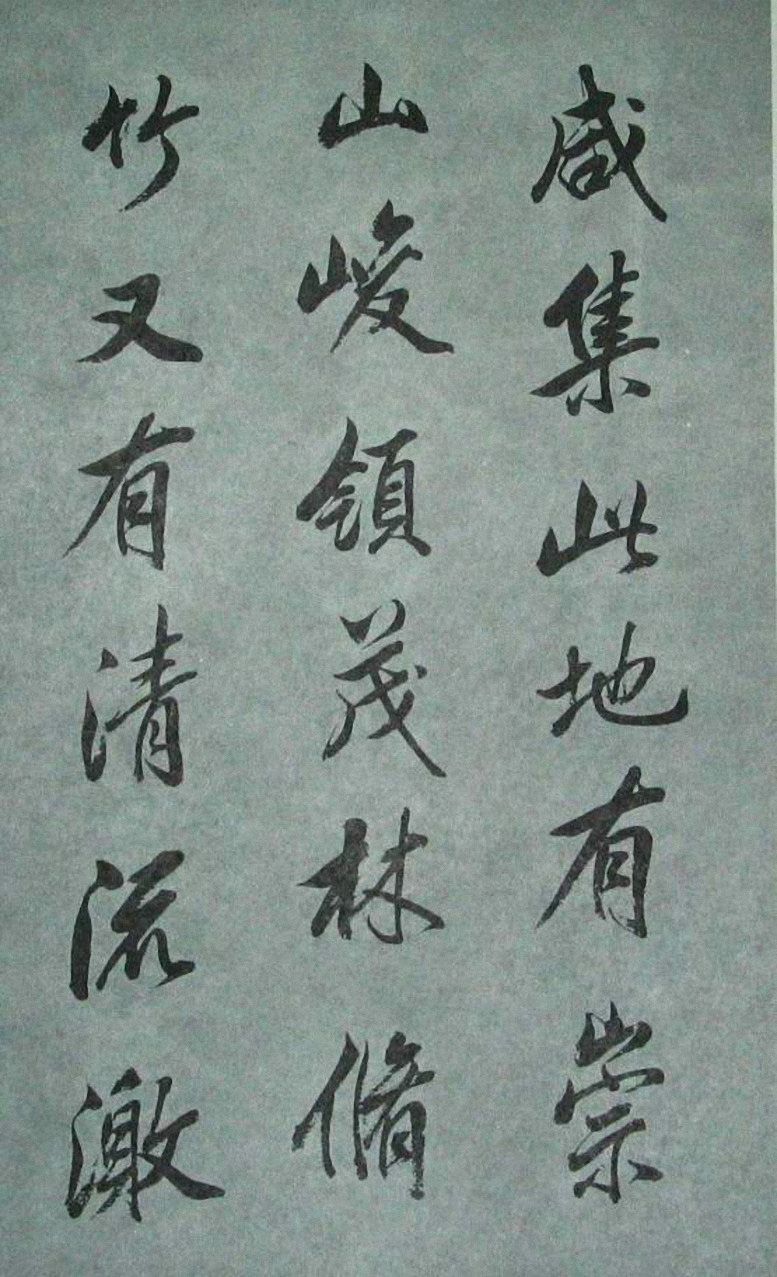 咸集此地有崇
山峻領茂林脩
竹又有清流激